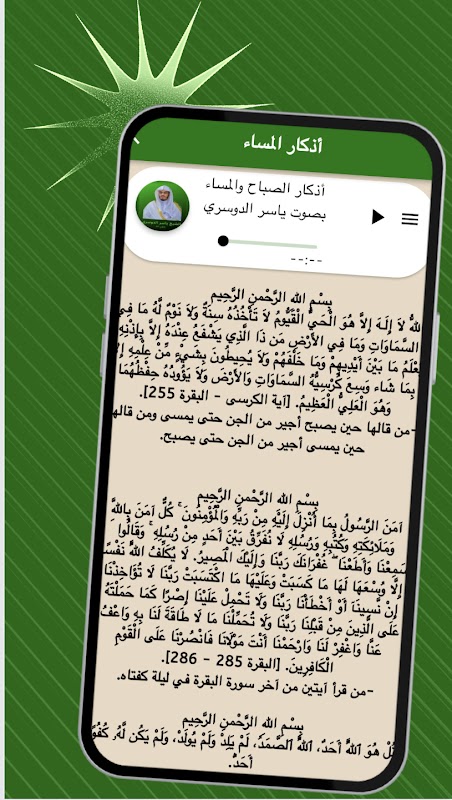 أذكار المساء
أذكار الصباح والمساء
بصوت ياسر الدوسري
--:--
بِسْمِ الله الرَّحْمنِ الرَّحِيم
اللهُ لاَ إِلَهَ إِلاَّ هُوَ الْحَيُّ الْقَيُّومُ لاَ تَأْخُذُهُ سِنَةٌ وَلاَ نَوْمٌ لَّهُ مَا فِي
السَّمَاوَاتِ وَمَا فِي الأَرْضِ مَن ذَا الَّذِي يَشْفَعُ عِنْدَهُ إِلاَّ بِإِذْنِهِ
يَعْلَمُ مَا بَيْنَ أَيْدِيهِمْ وَمَا خَلْفَهُمْ وَلاَ يُحِيطُونَ بِشَيْءٍ مِّنْ عِلْمِهِ إِلاَّ
بِمَا شَاء وَسِعَ كُرْسِيُّهُ السَّمَاوَاتِ وَالأَرْضَ وَلاَ يَؤُودُهُ حِفْظُهُمَا
وَهُوَ الْعَلِيُّ الْعَظِيمُ. [آية الكرسى - البقرة 255].
-من قالها حين يصبح أجير من الجن حتى يمسى ومن قالها
حين يمسى أجير من الجن حتى يصبح.
بِسْمِ الله الرَّحْمنِ الرَّحِيم
آمَنَ الرَّسُولُ بِمَا أُنْزِلَ إِلَيْهِ مِنْ رَبِّهِ وَالْمُؤْمِنُونَ ۚ كُلٌّ آمَنَ بِاللَّهِ
وَمَلَائِكَتِهِ وَكُتُبِهِ وَرُسُلِهِ لَا نُفَرِّقُ بَيْنَ أَحَدٍ مِنْ رُسُلِهِ ۚ وَقَالُوا
سَمِعْنَا وَأَطَعْنَا ۖ غُفْرَانَكَ رَبَّنَا وَإِلَيْكَ الْمَصِيرُ. لَا يُكَلِّفُ اللَّهُ نَفْسًا
إِلَّا وُسْعَهَا لَهَا مَا كَسَبَتْ وَعَلَيْهَا مَا اكْتَسَبَتْ رَبَّنَا لَا تُؤَاخِذْنَا
إِنْ نَسِينَا أَوْ أَخْطَأْنَا رَبَّنَا وَلَا تَحْمِلْ عَلَيْنَا إِصْرًا كَمَا حَمَلْتَهُ
عَلَى الَّذِينَ مِنْ قَبْلِنَا رَبَّنَا وَلَا تُحَمِّلْنَا مَا لَا طَاقَةَ لَنَا بِهِ وَاعْفُ
عَنَّا وَاغْفِرْ لَنَا وَارْحَمْنَا أَنْتَ مَوْلَانَا فَانْصُرْنَا عَلَى الْقَوْمِ
الْكَافِرِينَ. [البقرة 285 - 286].
-من قرأ آيتين من آخر سورة البقرة في ليلة كفتاه.
بِسْمِ الله الرَّحْمنِ الرَّحِيم
قُلْ هُوَ ٱللَّهُ أَحَدٌ، ٱللَّهُ ٱلصَّمَدُ، لَمْ يَلِدْ وَلَمْ يُولَدْ، وَلَمْ يَكُن لَّهُۥ كُفُوًا
أَحَدٌ.